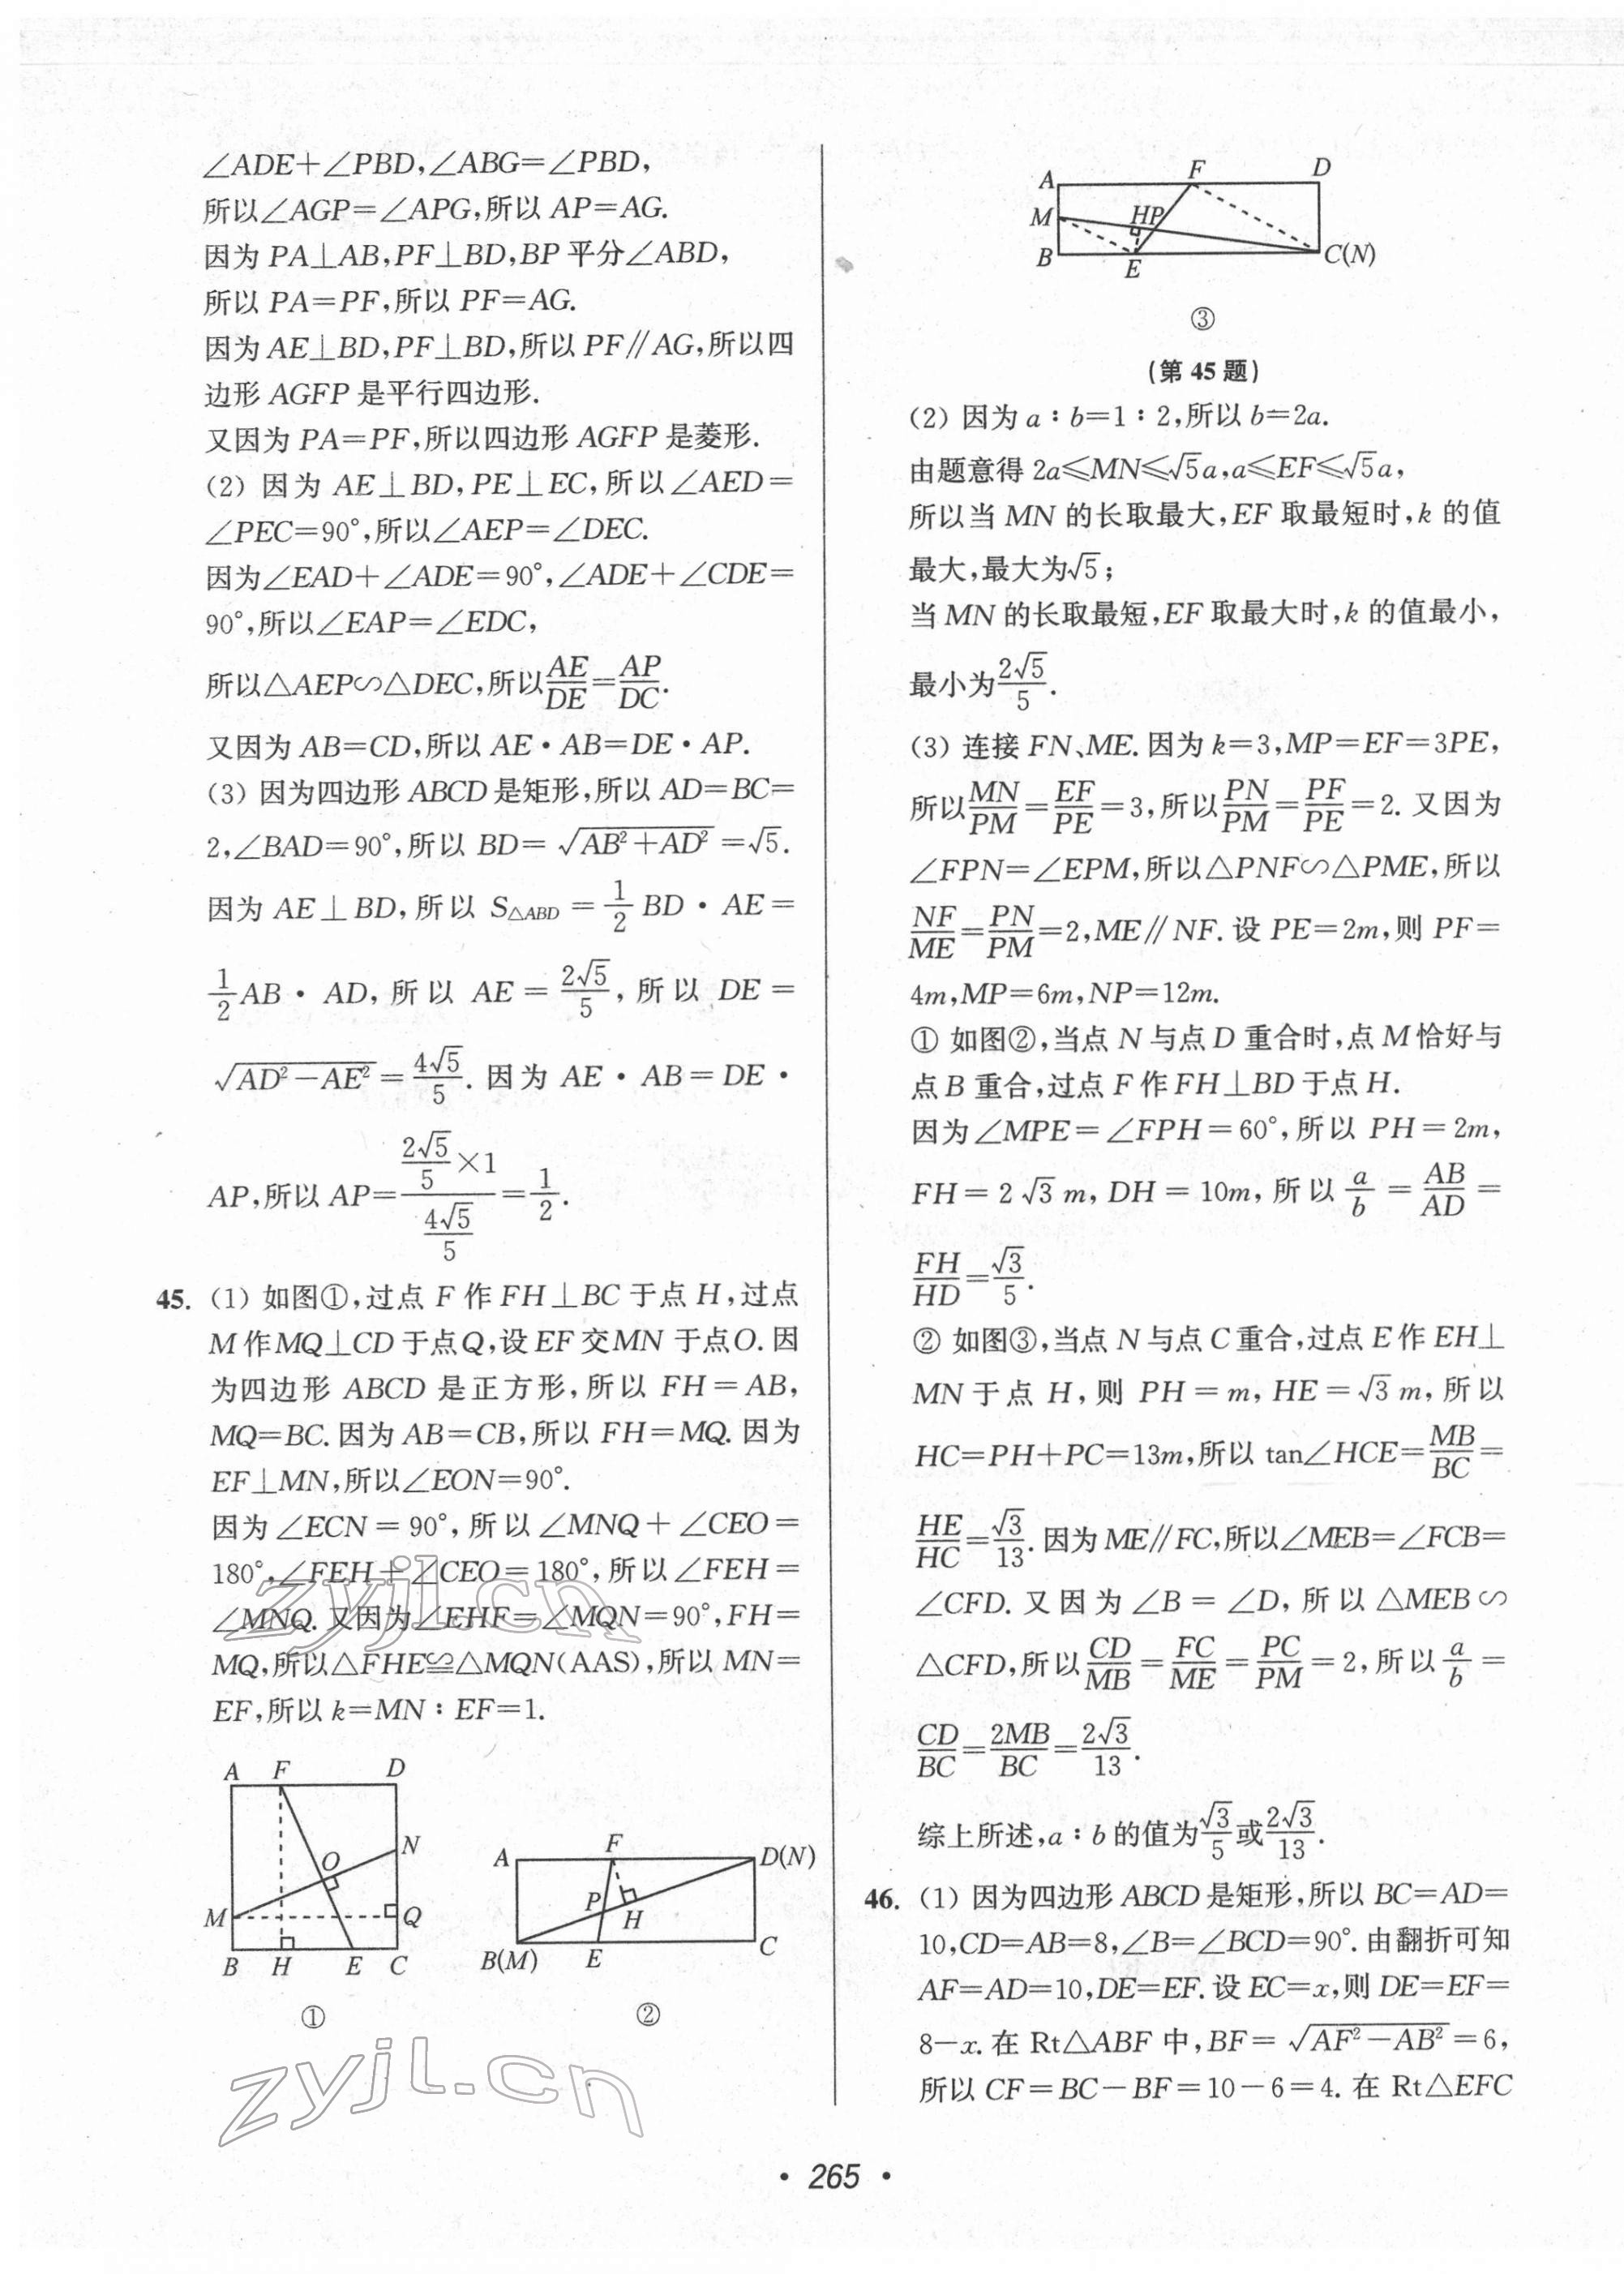 ∠ADE+∠PBD,∠ABG=∠PBD,
所以∠AGP=∠APG,所以 AP=AG.
因为 PA⊥AB,PF⊥BD,BP 平分∠ABD,
所以 PA=PF,所以 PF=AG.
因为 AE⊥BD,PF⊥BD,所以 PF∥AG,所以四
边形 AGFP 是平行四边形.
又因为 PA=PF,所以四边形 AGFP 是菱形.
(2) 因为 AE⊥BD,PE⊥EC,所以∠AED=
∠PEC=90°,所以∠AEP=∠DEC.
因为∠EAD+∠ADE=90°,∠ADE+∠CDE=
90°,所以∠EAP=∠EDC,
所以△AEP∽△DEC,所以AE/DE=AP/DC.
又因为 AB=CD,所以 AE·AB=DE·AP.
(3) 因为四边形 ABCD 是矩形,所以 AD=BC=
2,∠BAD=90°,所以 BD=√(AB²+AD²)=√5.
因为 AE⊥BD,所以 S△ABD=1/2 BD·AE=
1/2 AB·AD,所以 AE=2√5/5,所以 DE=
√(AD²-AE²)=4√5/5.因为 AE·AB=DE·
AP,所以 AP=(2√5/5×1)/(4√5/5)=1/2.
45. (1) 如图①,过点 F 作 FH⊥BC 于点 H,过点
M 作 MQ⊥CD 于点Q,设 EF 交 MN 于点O.因
为四边形 ABCD 是正方形,所以 FH=AB,
MQ=BC.因为 AB=CB,所以 FH=MQ.因为
EF⊥MN,所以∠EON=90°.
因为∠ECN=90°,所以∠MNQ+∠CEO=
180°,∠FEH+∠CEO=180°,所以∠FEH=
∠MNQ.又因为∠EHF=∠MQN=90°,FH=
MQ,所以△FHE≌△MQN(AAS),所以 MN=
EF,所以 k=MN∶EF=1.
zyjl.cn
A F D
N
O
M Q
B H E C
①
A F D(N)
P
H
B(M) E C
②
zyjl.cn
A F D
M HP
B E C(N)
③
(第 45 题)
(2) 因为 a∶b=1∶2,所以 b=2a.
由题意得 2a≤MN≤√5a,a≤EF≤√5a,
所以当 MN 的长取最大,EF 取最短时,k 的值
最大,最大为√5;
当 MN 的长取最短,EF 取最大时,k 的值最小,
最小为2√5/5.
(3) 连接 FN、ME.因为 k=3,MP=EF=3PE,
所以MN/PM=EF/PE=3,所以PN/PM=PF/PE=2.又因为
∠FPN=∠EPM,所以△PNF∽△PME,所以
NF/ME=PN/PM=2,ME∥NF.设 PE=2m,则 PF=
4m,MP=6m,NP=12m.
① 如图②,当点 N 与点 D 重合时,点 M 恰好与
点 B 重合,过点 F 作 FH⊥BD 于点 H.
因为∠MPE=∠FPH=60°,所以 PH=2m,
FH=2√3m,DH=10m,所以 a/b=AB/AD=
FH/HD=√3/5.
② 如图③,当点 N 与点 C 重合,过点 E 作 EH⊥
MN 于点 H,则 PH=m,HE=√3m,所以
HC=PH+PC=13m,所以 tan∠HCE=MB/BC=
HE/HC=√3/13.因为 ME∥FC,所以∠MEB=∠FCB=
∠CFD.又因为∠B=∠D,所以△MEB∽
△CFD,所以CD/MB=FC/ME=PC/PM=2,所以a/b=
CD/BC=2MB/BC=2√3/13.
综上所述,a∶b 的值为√3/5或2√3/13.
46. (1) 因为四边形 ABCD 是矩形,所以 BC=AD=
10,CD=AB=8,∠B=∠BCD=90°.由翻折可知
AF=AD=10,DE=EF.设 EC=x,则 DE=EF=
8-x.在 Rt△ABF 中,BF=√(AF²-AB²)=6,
所以 CF=BC-BF=10-6=4.在 Rt△EFC
· 265 ·